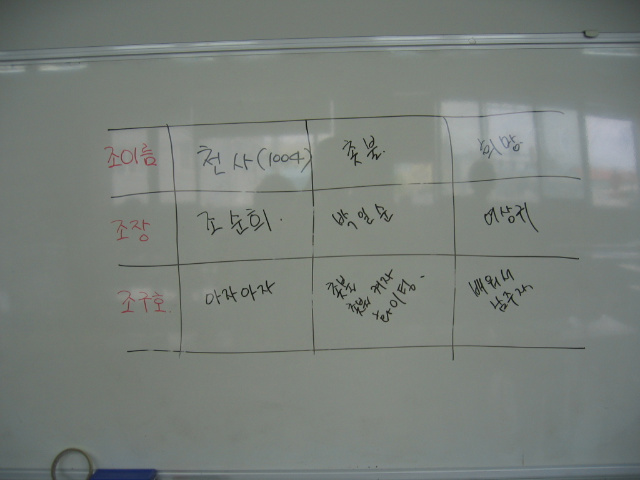 조이름 천사(1004) 촛불 희망
조장 조순희. 박일순 여상귀
조구호 아자아자 촛불
촛불 켜자
화이팅.
배워서
남주자.